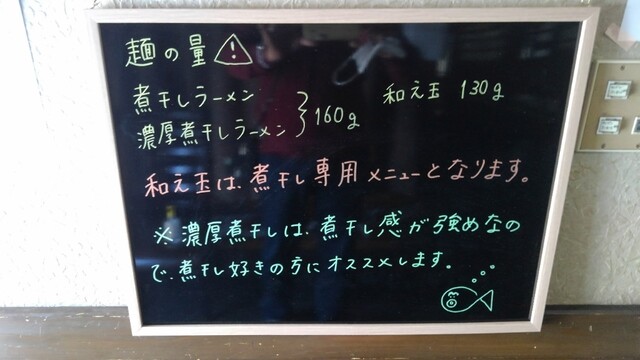 麺の量 ⚠
煮干しラーメン
濃厚煮干しラーメン
160g
和え玉 130g
和え玉は、煮干し専用メニューとなります。
※濃厚煮干しは、煮干し感が強めなの
で、煮干し好きの方にオススメします。